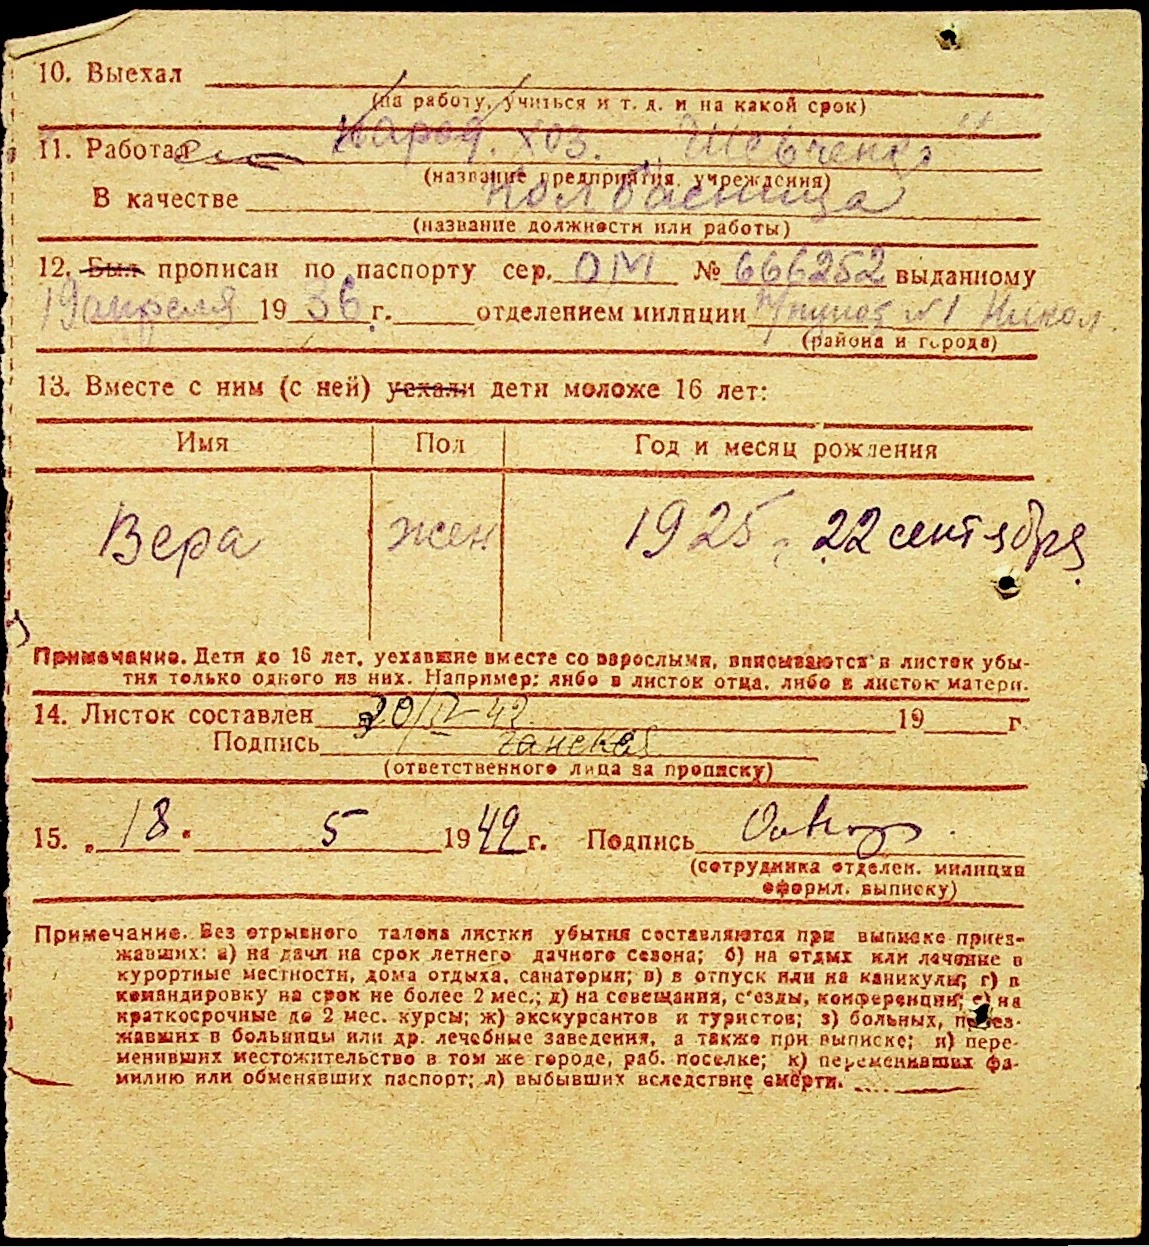 10. Выехал
(на работу, учиться и т. д. и на какой срок)
11. Работал Народ. хоз. Шевченко
(название предприятия, учреждения)
В качестве Колбасница
(название должности или работы)
12. Был прописан по паспорту сер. ОМ № 666252 выданному
19 апреля 1936 г. отделением милиции №1 Никол.
(района и города)
13. Вместе с ним (с ней) уехали дети моложе 16 лет:
Имя Пол Год и месяц рождения
Вера жен 1925 г. 22 сентября
Примечание. Дети до 16 лет, уехавшие вместе со взрослыми, вписываются в листок убы-
тия только одного из них. Например: либо в листок отца, либо в листок матери.
14. Листок составлен 20/IV-42 19 г.
Подпись
(ответственного лица за прописку)
15. „18" 5 1942 г. Подпись
(сотрудника отделен. милиции
оформл. выписку)
Примечание. Без отрывного талона листки убытия составляются при выписке приез-
жавших: а) на дачи на срок летнего дачного сезона; б) на отдых или лечение в
курортные местности, дома отдыха, санатории; в) в отпуск или на каникулы; г) в
командировку на срок не более 2 мес.; д) на совещания, с'езды, конференции; е) на
краткосрочные до 2 мес. курсы; ж) экскурсантов и туристов; з) больных, приез-
жавших в больницы или др. лечебные заведения, а также при выписке; и) пере-
менивших местожительство в том же городе, раб. поселке; к) переменивших фа-
милию или обменявших паспорт; л) выбывших вследствие смерти.